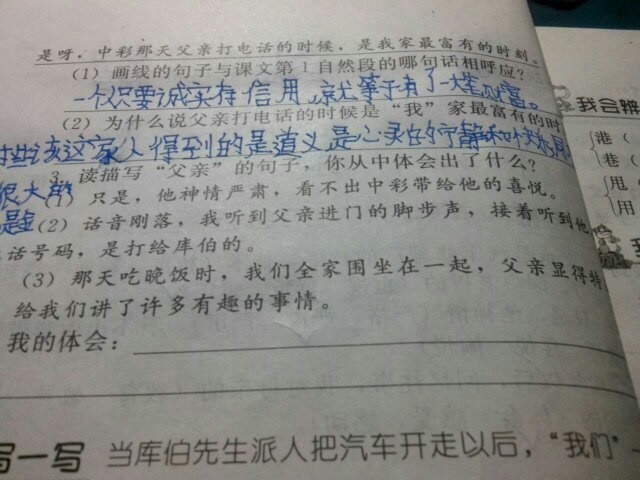 是呀，中彩那天父亲打电话的时候，是我家最富有的时刻。
（1）画线的句子与课文第1自然段的哪句话相呼应？
一个人只要诚实有信用，就等于有了一大笔财富。
（2）为什么说父亲打电话的时候是“我”家最富有的时
家人得到的是道义是心灵的宁静和快乐
3. 读描写“父亲”的句子，你从中体会出了什么？
很大
（1）只是，他神情严肃，看不出中彩带给他的喜悦。
（2）话音刚落，我听到父亲进门的脚步声，接着听到他
话号码，是打给库伯的。
（3）那天吃晚饭时，我们全家围坐在一起，父亲显得特
给我们讲了许多有趣的事情。
我的体会：
写一写 当库伯先生派人把汽车开走以后，“我们”
我会辨
港（
巷（
甩（
用（